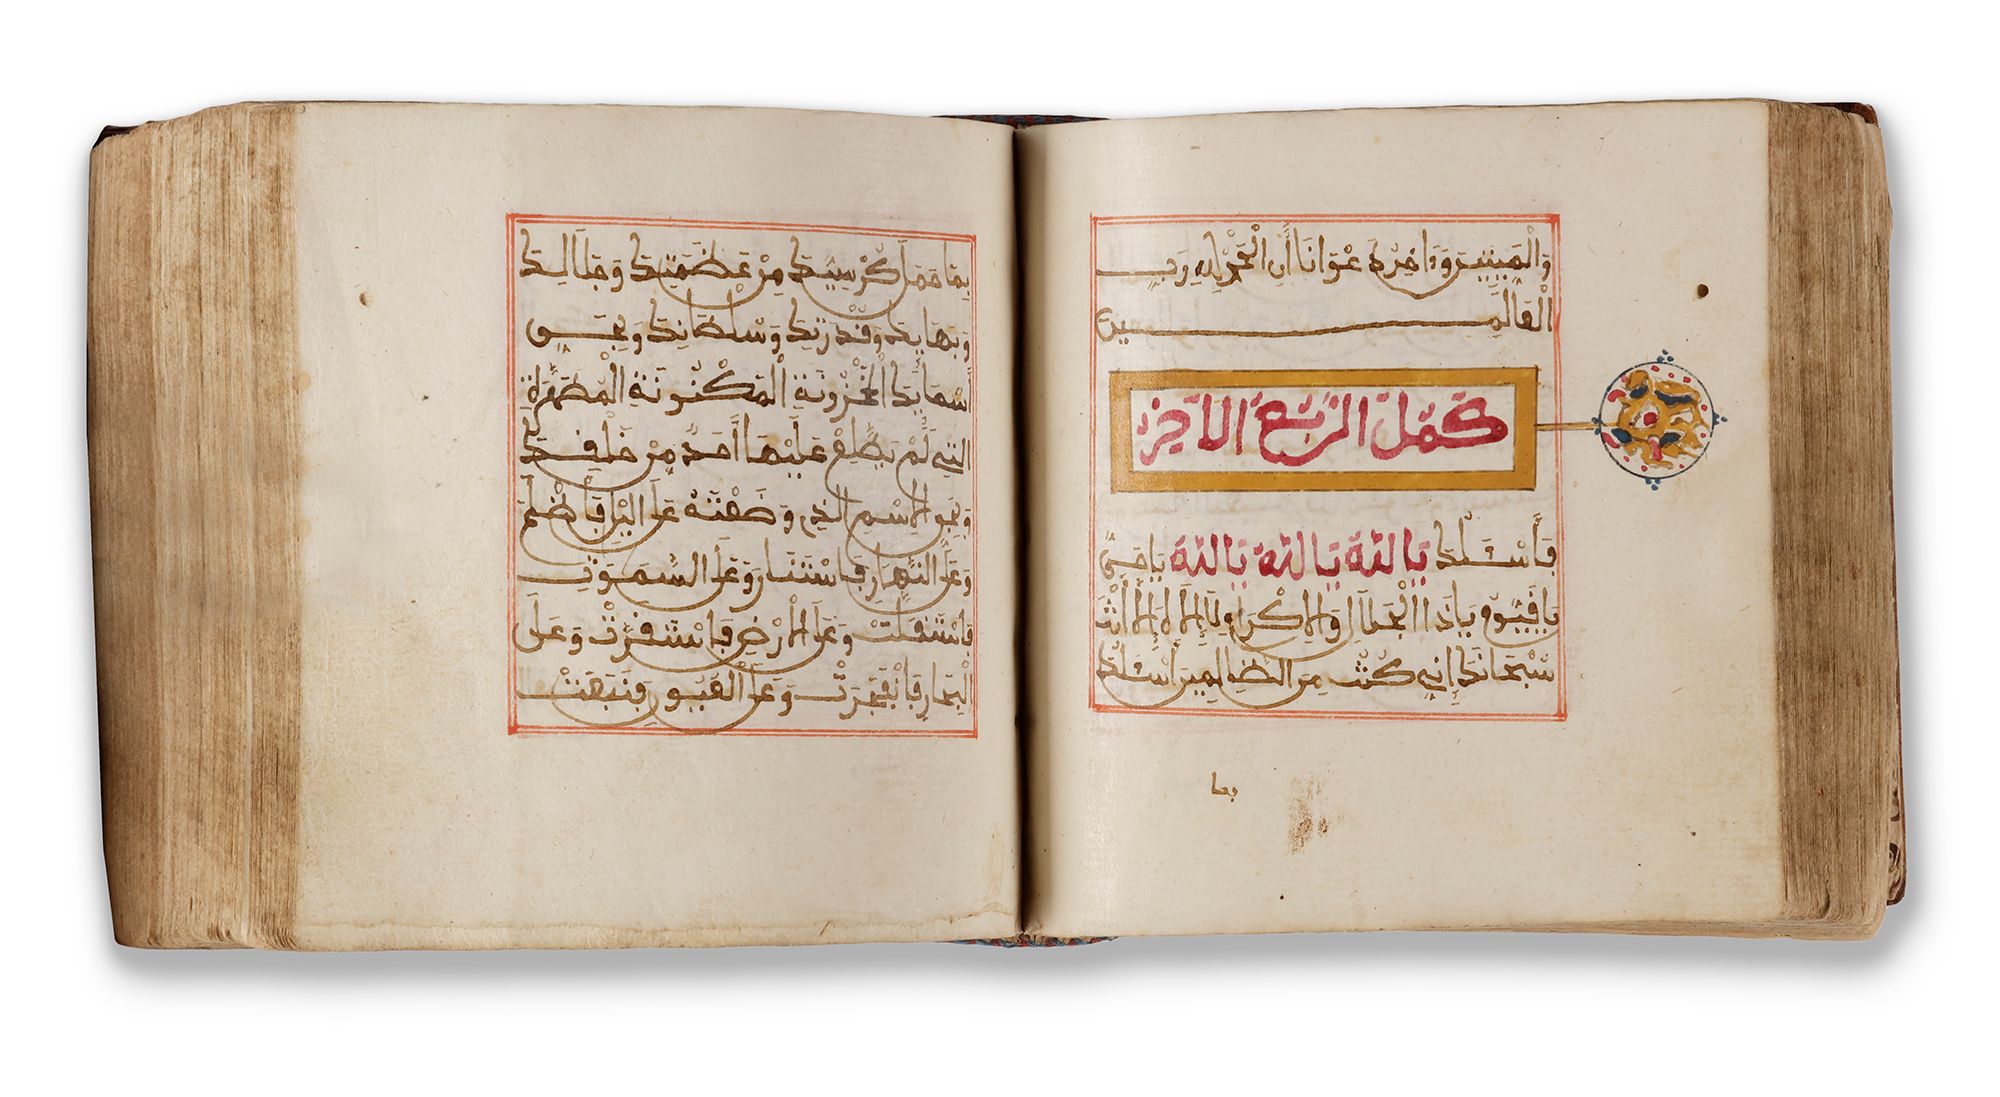 والميتين وءاخر دعوانا أن الحمد لله رب
العالمين
كمل الربع الأخير
فأسئلك يا الله يا الله يا الله يا حي
يا قيوم يا ذا الجلال والإكرام لا إله إلا أنت
سبحانك إني كنت من الظالمين أسئلك
بما
بما حمل كرسيك من عظمتك وجلالك
وبهايك وقدرتك وسلطانك وبحق
أسمايك المخزونة المكنونة المطهرة
التي لم يطلع عليها أحد من خلقك
وبحق الإسم الذي وضعته على اليل فأظلم
وعلى النهار فاستنار وعلى السموت
فاستقلت وعلى الأرض فاستقرت وعلى
البحار فانفجرت وعلى العيون فنبعت